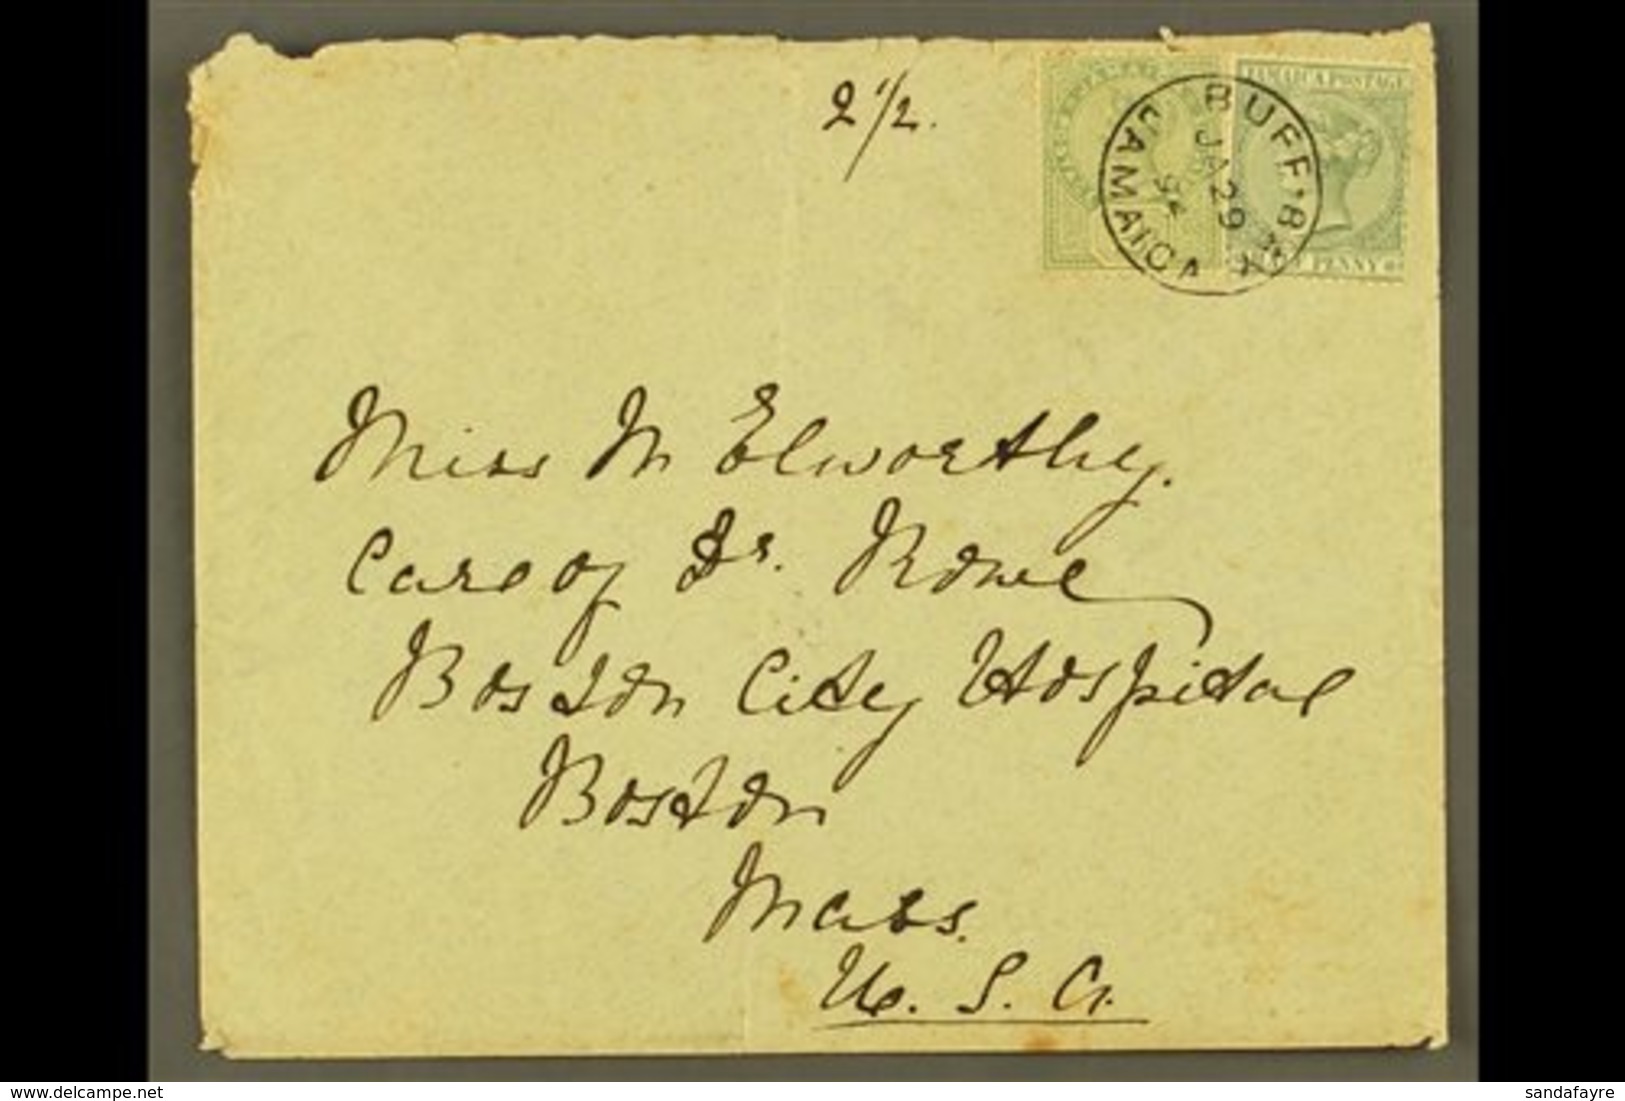 2 1/2.
JAMAICA POSTAGE
BUFF. B
JA 29
94
JAMAICA
PENNY
Miss M Elworthy.
Care of Dr. Rowe
Boston City Hospital
Boston
Mass.
U. S. A.
delcampe.net
sandafayre